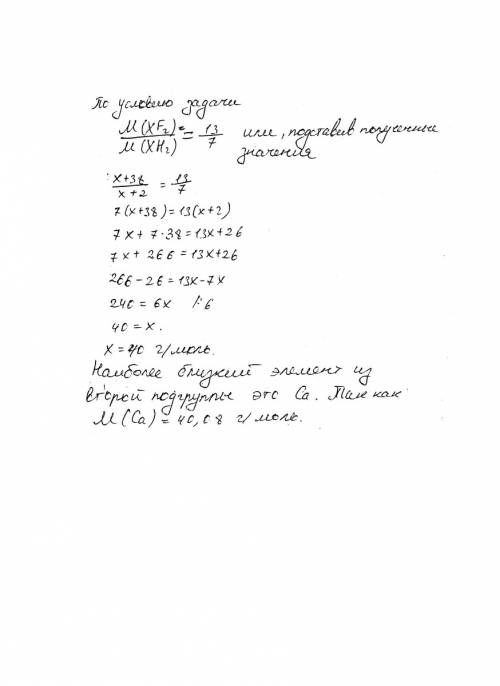 По условию задачи
M(XF₂) / M(XH₂) = 13/7 или, подставив полученные
значения
x+38 / x+2 = 13/7
7(x+38)=13(x+2)
7x+7·38=13x+26
7x+266=13x+26
266-26=13x-7x
240=6x /:6
40=x.
x=40 г/моль.
Наиболее близкий элемент из
второй подгруппы это Ca. Так как
M(Ca)=40,08 г/моль.